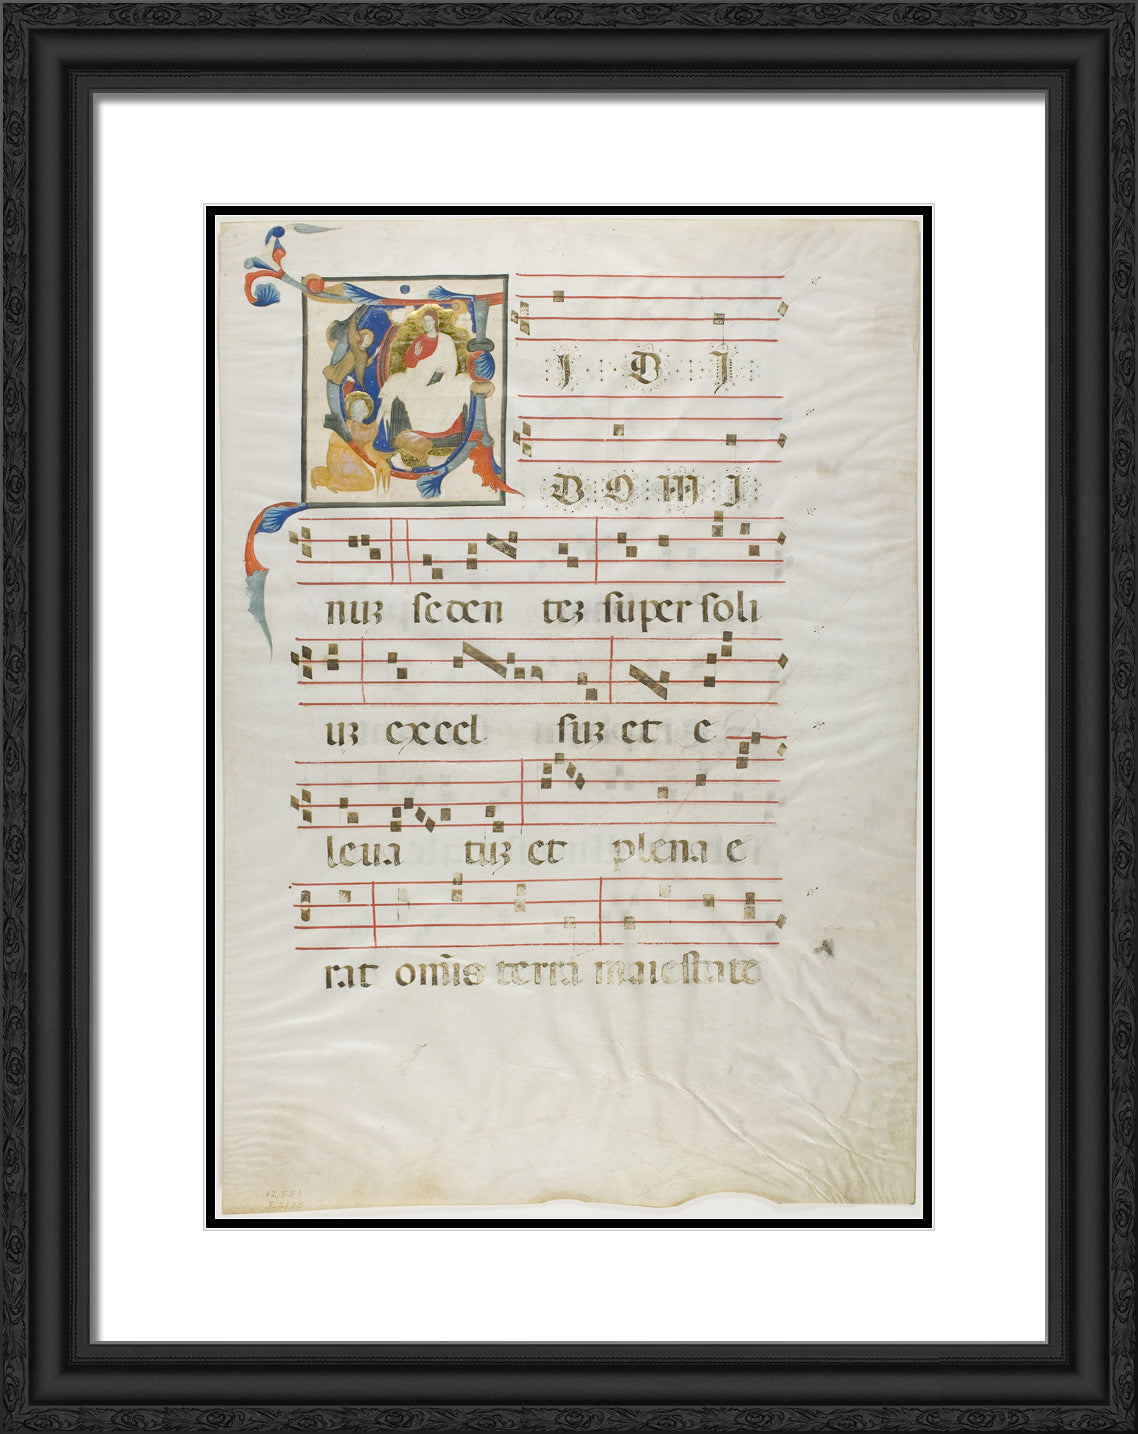 I D I
D O M I
nuʒ seden teʒ super soli
uʒ excel suʒ et e
leua tuʒ et plena e
rat om̄is terra maiestate
42.551
R.2155